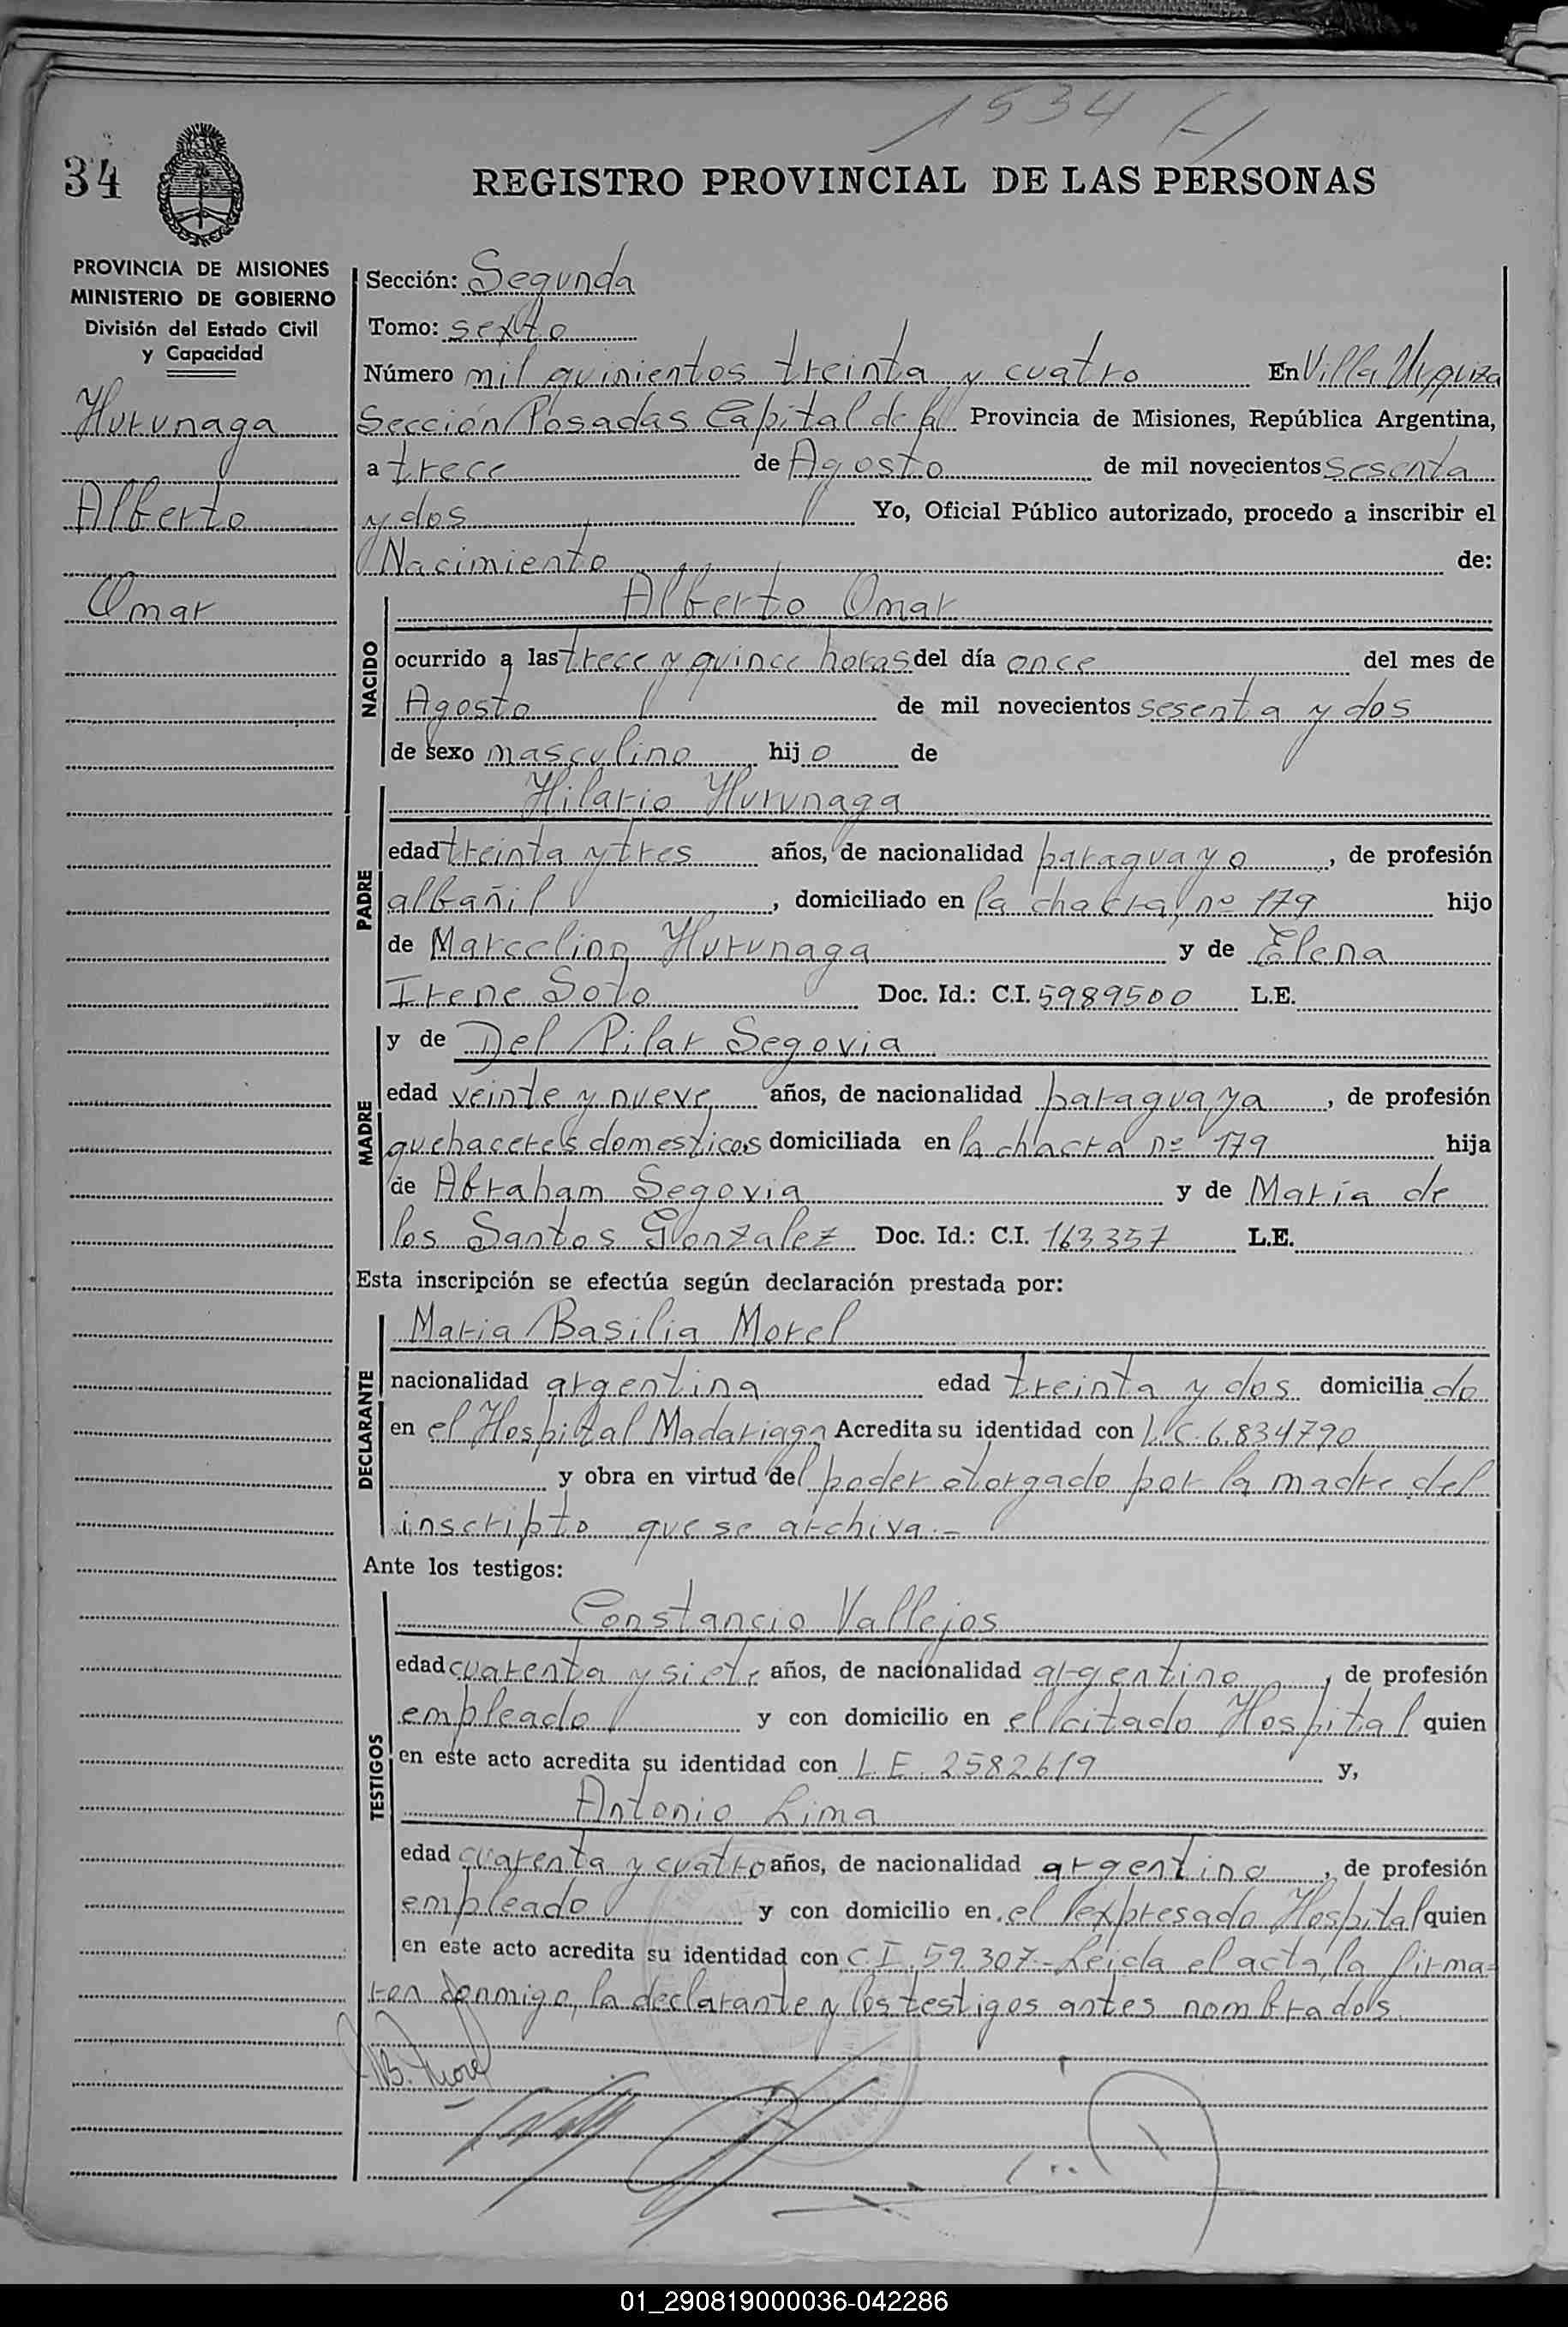 1534
34
REGISTRO PROVINCIAL DE LAS PERSONAS
PROVINCIA DE MISIONES
MINISTERIO DE GOBIERNO
División del Estado Civil
y Capacidad
Hurunaga
Alberto
Omar
Sección: Segunda
Tomo: sexto
Número mil quinientos treinta y cuatro En Villa Urquiza
Sección Posadas Capital de la Provincia de Misiones, República Argentina,
a trece de Agosto de mil novecientos sesenta
y dos Yo, Oficial Público autorizado, procedo a inscribir el
Nacimiento de:
NACIDO
Alberto Omar
ocurrido a las trece y quince horas del día once del mes de
Agosto de mil novecientos sesenta y dos
de sexo masculino hijo de
PADRE
Hilario Hurunaga
edad treinta y tres años, de nacionalidad paraguayo, de profesión
albañil, domiciliado en la chacra nº 179 hijo
de Marcelino Hurunaga y de Elena
Irene Soto Doc. Id.: C.I. 5989500 L.E.
MADRE
y de Del Pilar Segovia
edad veinte y nueve años, de nacionalidad paraguaya, de profesión
quehaceres domesticos domiciliada en la chacra nº 179 hija
de Abraham Segovia y de María de
los Santos Gonzalez Doc. Id.: C.I. 163357 L.E.
Esta inscripción se efectúa según declaración prestada por:
DECLARANTE
Maria Basilia Morel
nacionalidad argentina edad treinta y dos domiciliado
en el Hospital Madariaga Acredita su identidad con L.C. 6.834790
y obra en virtud del poder otorgado por la madre del
inscripto que se archiva.-
Ante los testigos:
TESTIGOS
Constancio Vallejos
edad cuarenta y siete años, de nacionalidad argentino, de profesión
empleado y con domicilio en el citado Hospital quien
en este acto acredita su identidad con L.E. 2582619 y,
Antonio Lima
edad cuarenta y cuatro años, de nacionalidad argentino, de profesión
empleado y con domicilio en el expresado Hospital quien
en este acto acredita su identidad con C.I. 59.307.- Leida el acta, la firma-
ron conmigo, la declarante y los testigos antes nombrados
B. Morel
01_290819000036-042286